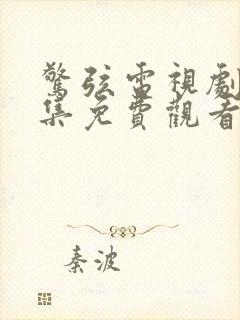 驚弦電視劇
集免費觀看
秦波